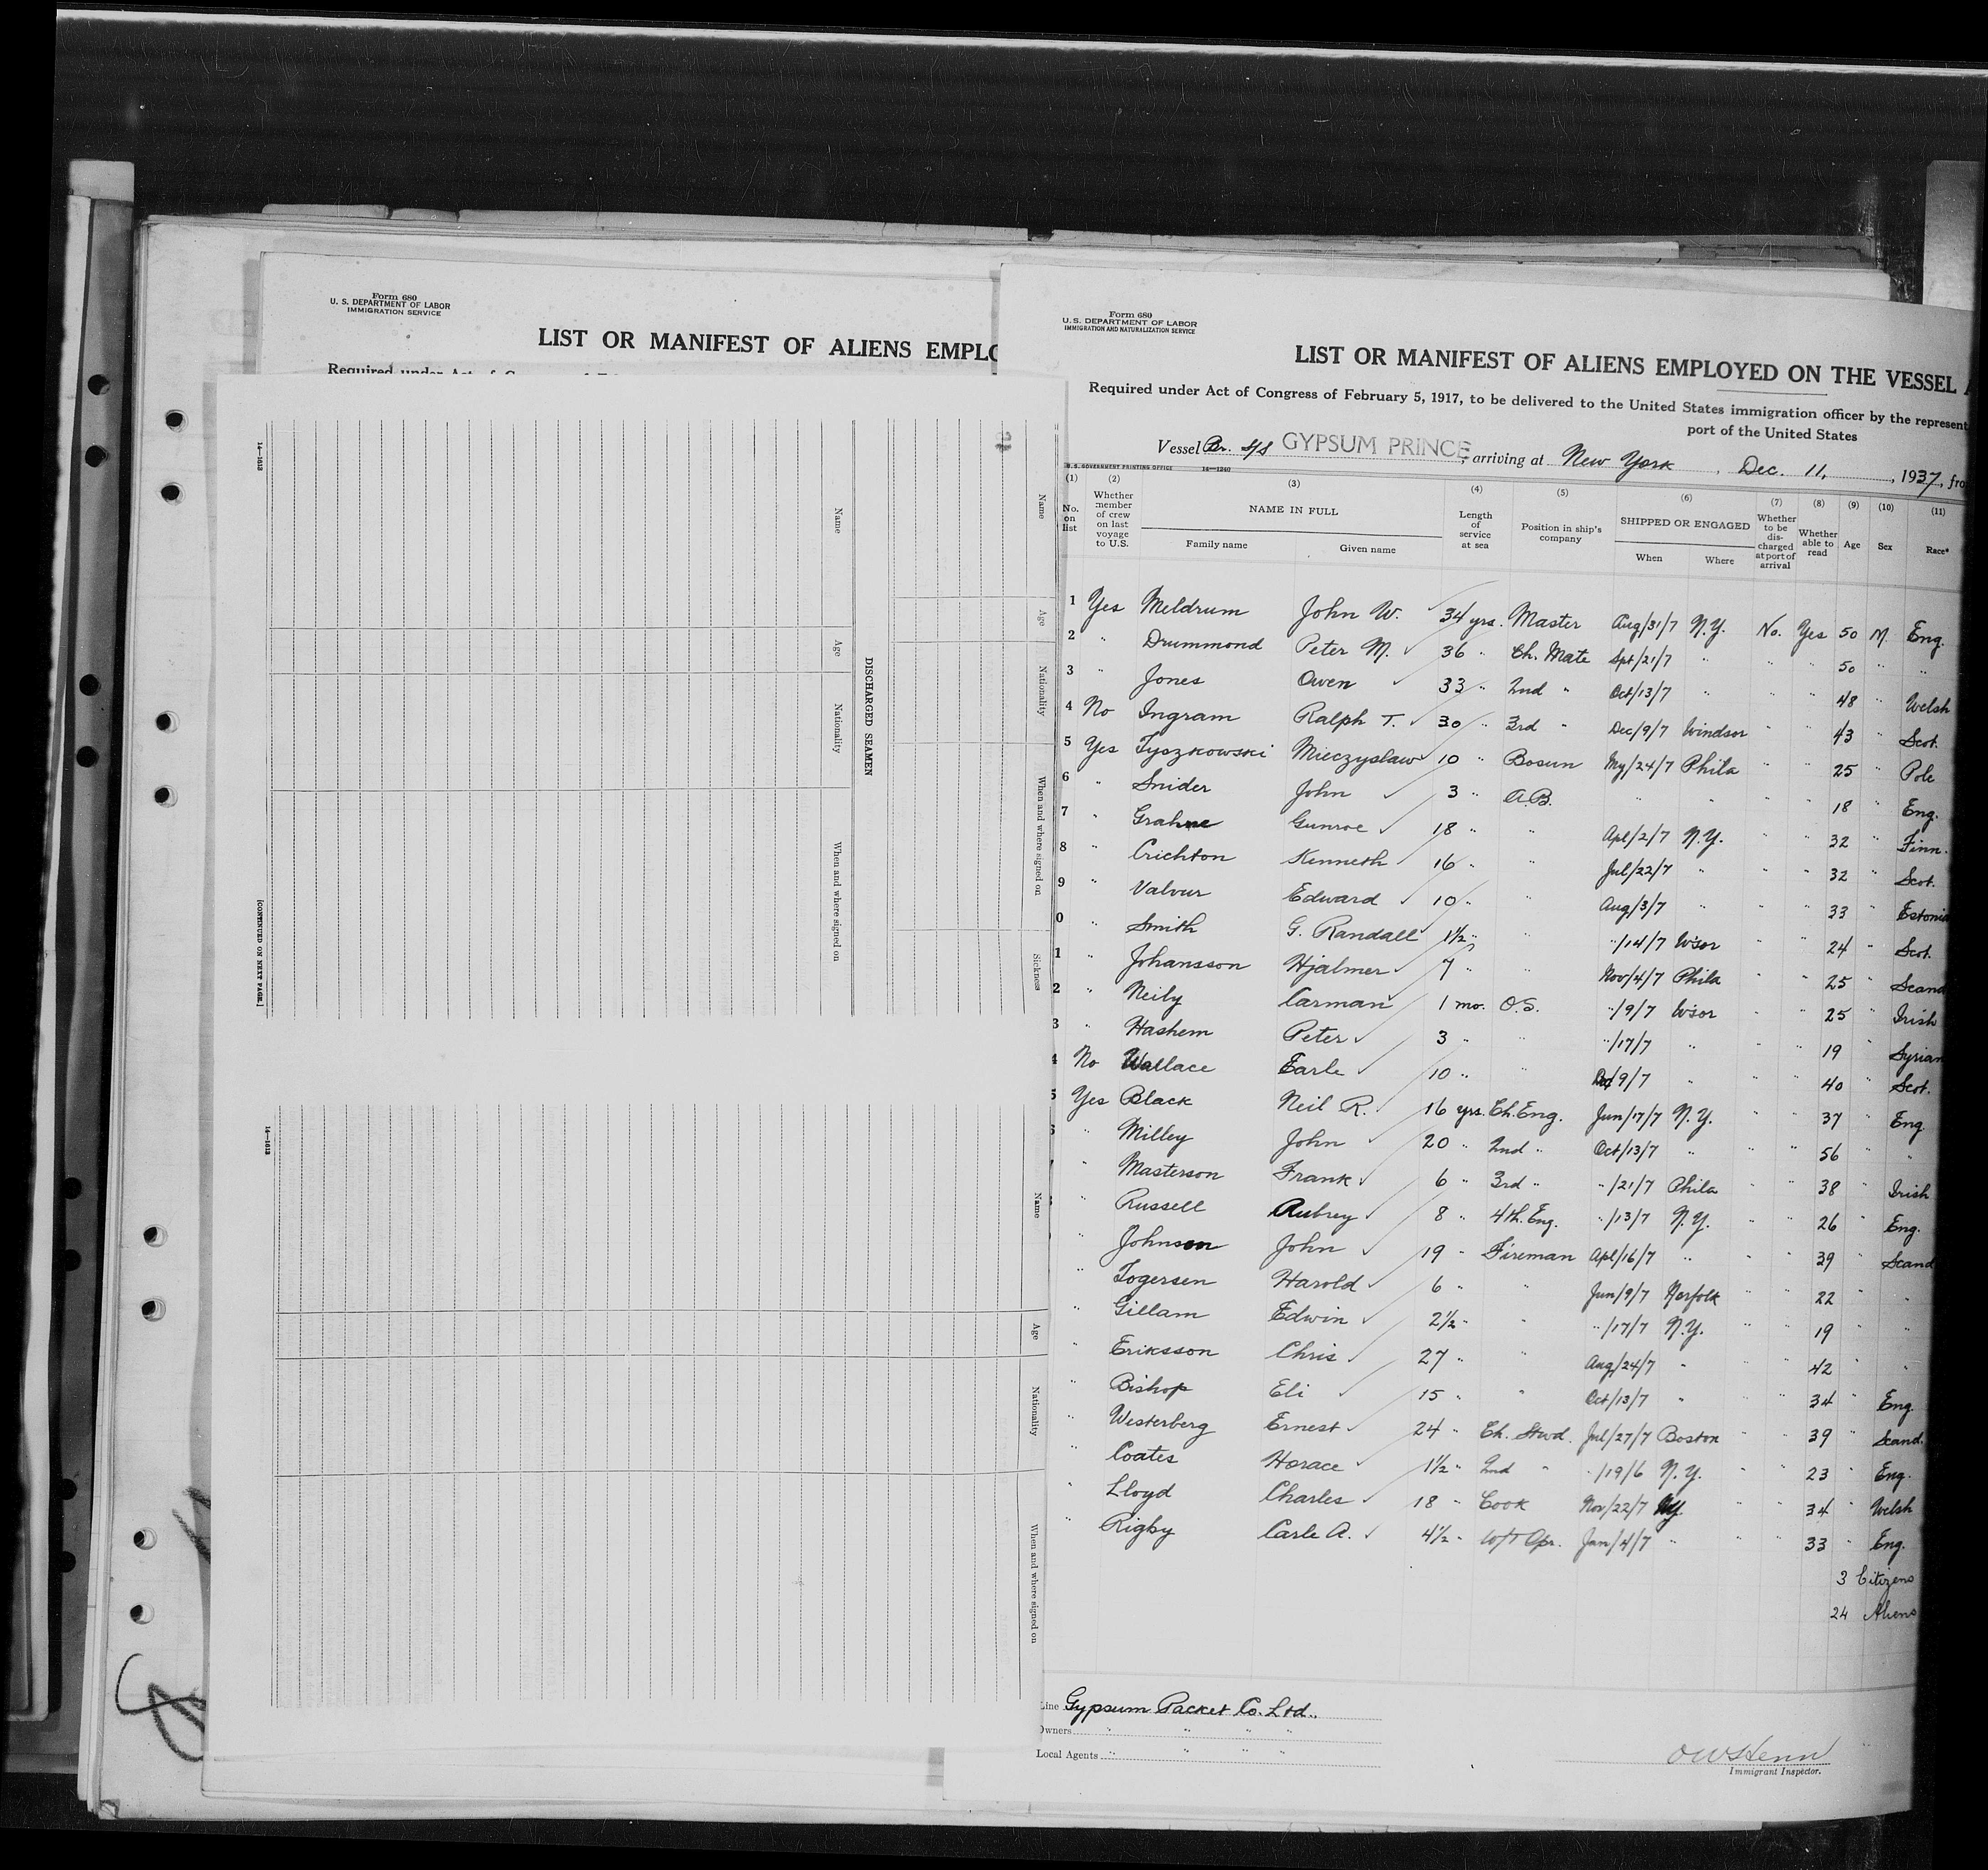 Form 680
U. S. DEPARTMENT OF LABOR
IMMIGRATION SERVICE
LIST OR MANIFEST OF ALIENS EMPLO
Required under Act of C
14—1613
Name
Age
Nationality
When and where signed on
DISCHARGED SEAMEN
Name
Age
Nationality
When and where signed on
Sickness
[CONTINUED ON NEXT PAGE.]
14—1613
Name
Age
Nationality
When and where signed on
Form 680
U. S. DEPARTMENT OF LABOR
IMMIGRATION AND NATURALIZATION SERVICE
LIST OR MANIFEST OF ALIENS EMPLOYED ON THE VESSEL
Required under Act of Congress of February 5, 1917, to be delivered to the United States immigration officer by the represent
port of the United States
Vessel Br. S/S GYPSUM PRINCE, arriving at New York, Dec. 11, 1937, fro
U. S. GOVERNMENT PRINTING OFFICE 14—1240
(1) (2) (3) (4) (5) (6) (7) (8) (9) (10) (11)
No. on list
Whether member of crew on last voyage to U.S.
NAME IN FULL
Family name Given name
Length of service at sea
Position in ship's company
SHIPPED OR ENGAGED
When Where
Whether to be discharged at port of arrival
Whether able to read
Age
Sex
Race*
1 Yes Meldrum John W. 34 yrs. Master Aug/31/7 N.Y. No. Yes 50 M. Eng.
2 " Drummond Peter M. 36 " Ch. Mate Spt/21/7 " " " 50 " "
3 " Jones Owen 33 " 2nd " Oct/13/7 " " " 48 " Welsh
4 No Ingram Ralph T. 30 " 3rd " Dec/9/7 Windsor " " 43 " Scot.
5 Yes Tyszkowski Mieczyslaw 10 " Bosun My/24/7 Phila " " 25 " Pole
6 " Snider John 3 " A.B. " " " " 18 " Eng.
7 " Grahne Gunroe 18 " " Apl/2/7 N.Y. " " 32 " Finn.
8 " Crichton Kenneth 16 " " Jul/22/7 " " " 32 " Scot.
9 " Valvur Edward 10 " " Aug/3/7 " " " 33 " Estonia
0 " Smith G. Randall 1½ " " "/14/7 W'sor " " 24 " Scot.
1 " Johansson Hjalmer 7 " " Nov/4/7 Phila " " 25 " Scand
2 " Neily Carman 1 mo. O.S. "/9/7 W'sor " " 25 " Irish
3 " Hashem Peter 3 " " "/17/7 " " " 19 " Syrian
4 No Wallace Earle 10 " " Dec/9/7 " " " 40 " Scot.
5 Yes Black Neil R. 16 yrs. Ch. Eng. Jun/17/7 N.Y. " " 37 " Eng.
6 " Milley John 20 " 2nd " Oct/13/7 " " " 56 " "
" Masterson Frank 6 " 3rd " "/21/7 Phila " " 38 " Irish
" Russell Aubrey 8 " 4th. Eng. "/13/7 N.Y. " " 26 " Eng.
" Johnson John 19 " Fireman Apl/16/7 " " " 39 " Scand
" Togersen Harold 6 " " Jun/9/7 Norfolk " " 22 " "
" Gillam Edwin 2½ " " "/17/7 N.Y. " " 19 " "
" Eriksson Chris 27 " " Aug/24/7 " " " 42 " "
" Bishop Eli 15 " " Oct/13/7 " " " 34 " Eng.
" Westerberg Ernest 24 " Ch. Stwd. Jul/27/7 Boston " " 39 " Scand.
" Coates Horace 1½ " 2nd " "/19/6 N.Y. " " 23 " Eng.
" Lloyd Charles 18 " Cook Nov/22/7 NY. " " 34 " Welsh
" Rigby Carle A. 4½ " W/T Opr. Jan/4/7 " " " 33 " Eng.
3 Citizens
24 Aliens
Line Gypsum Packet Co. Ltd.,
Owners " " " "
Local Agents " " " "
O W Henn
Immigrant Inspector.